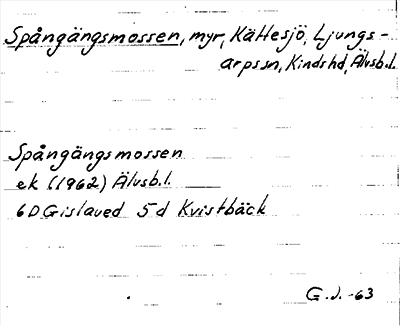 Spångängsmossen, myr, Kättesjö, Ljungs-
arps sn, Kinds hd, Älvsb.l.
Spångängsmossen
ek (1962) Älvsb.l.
6D Gislaved 5d Kvistbäck
G.J. -63